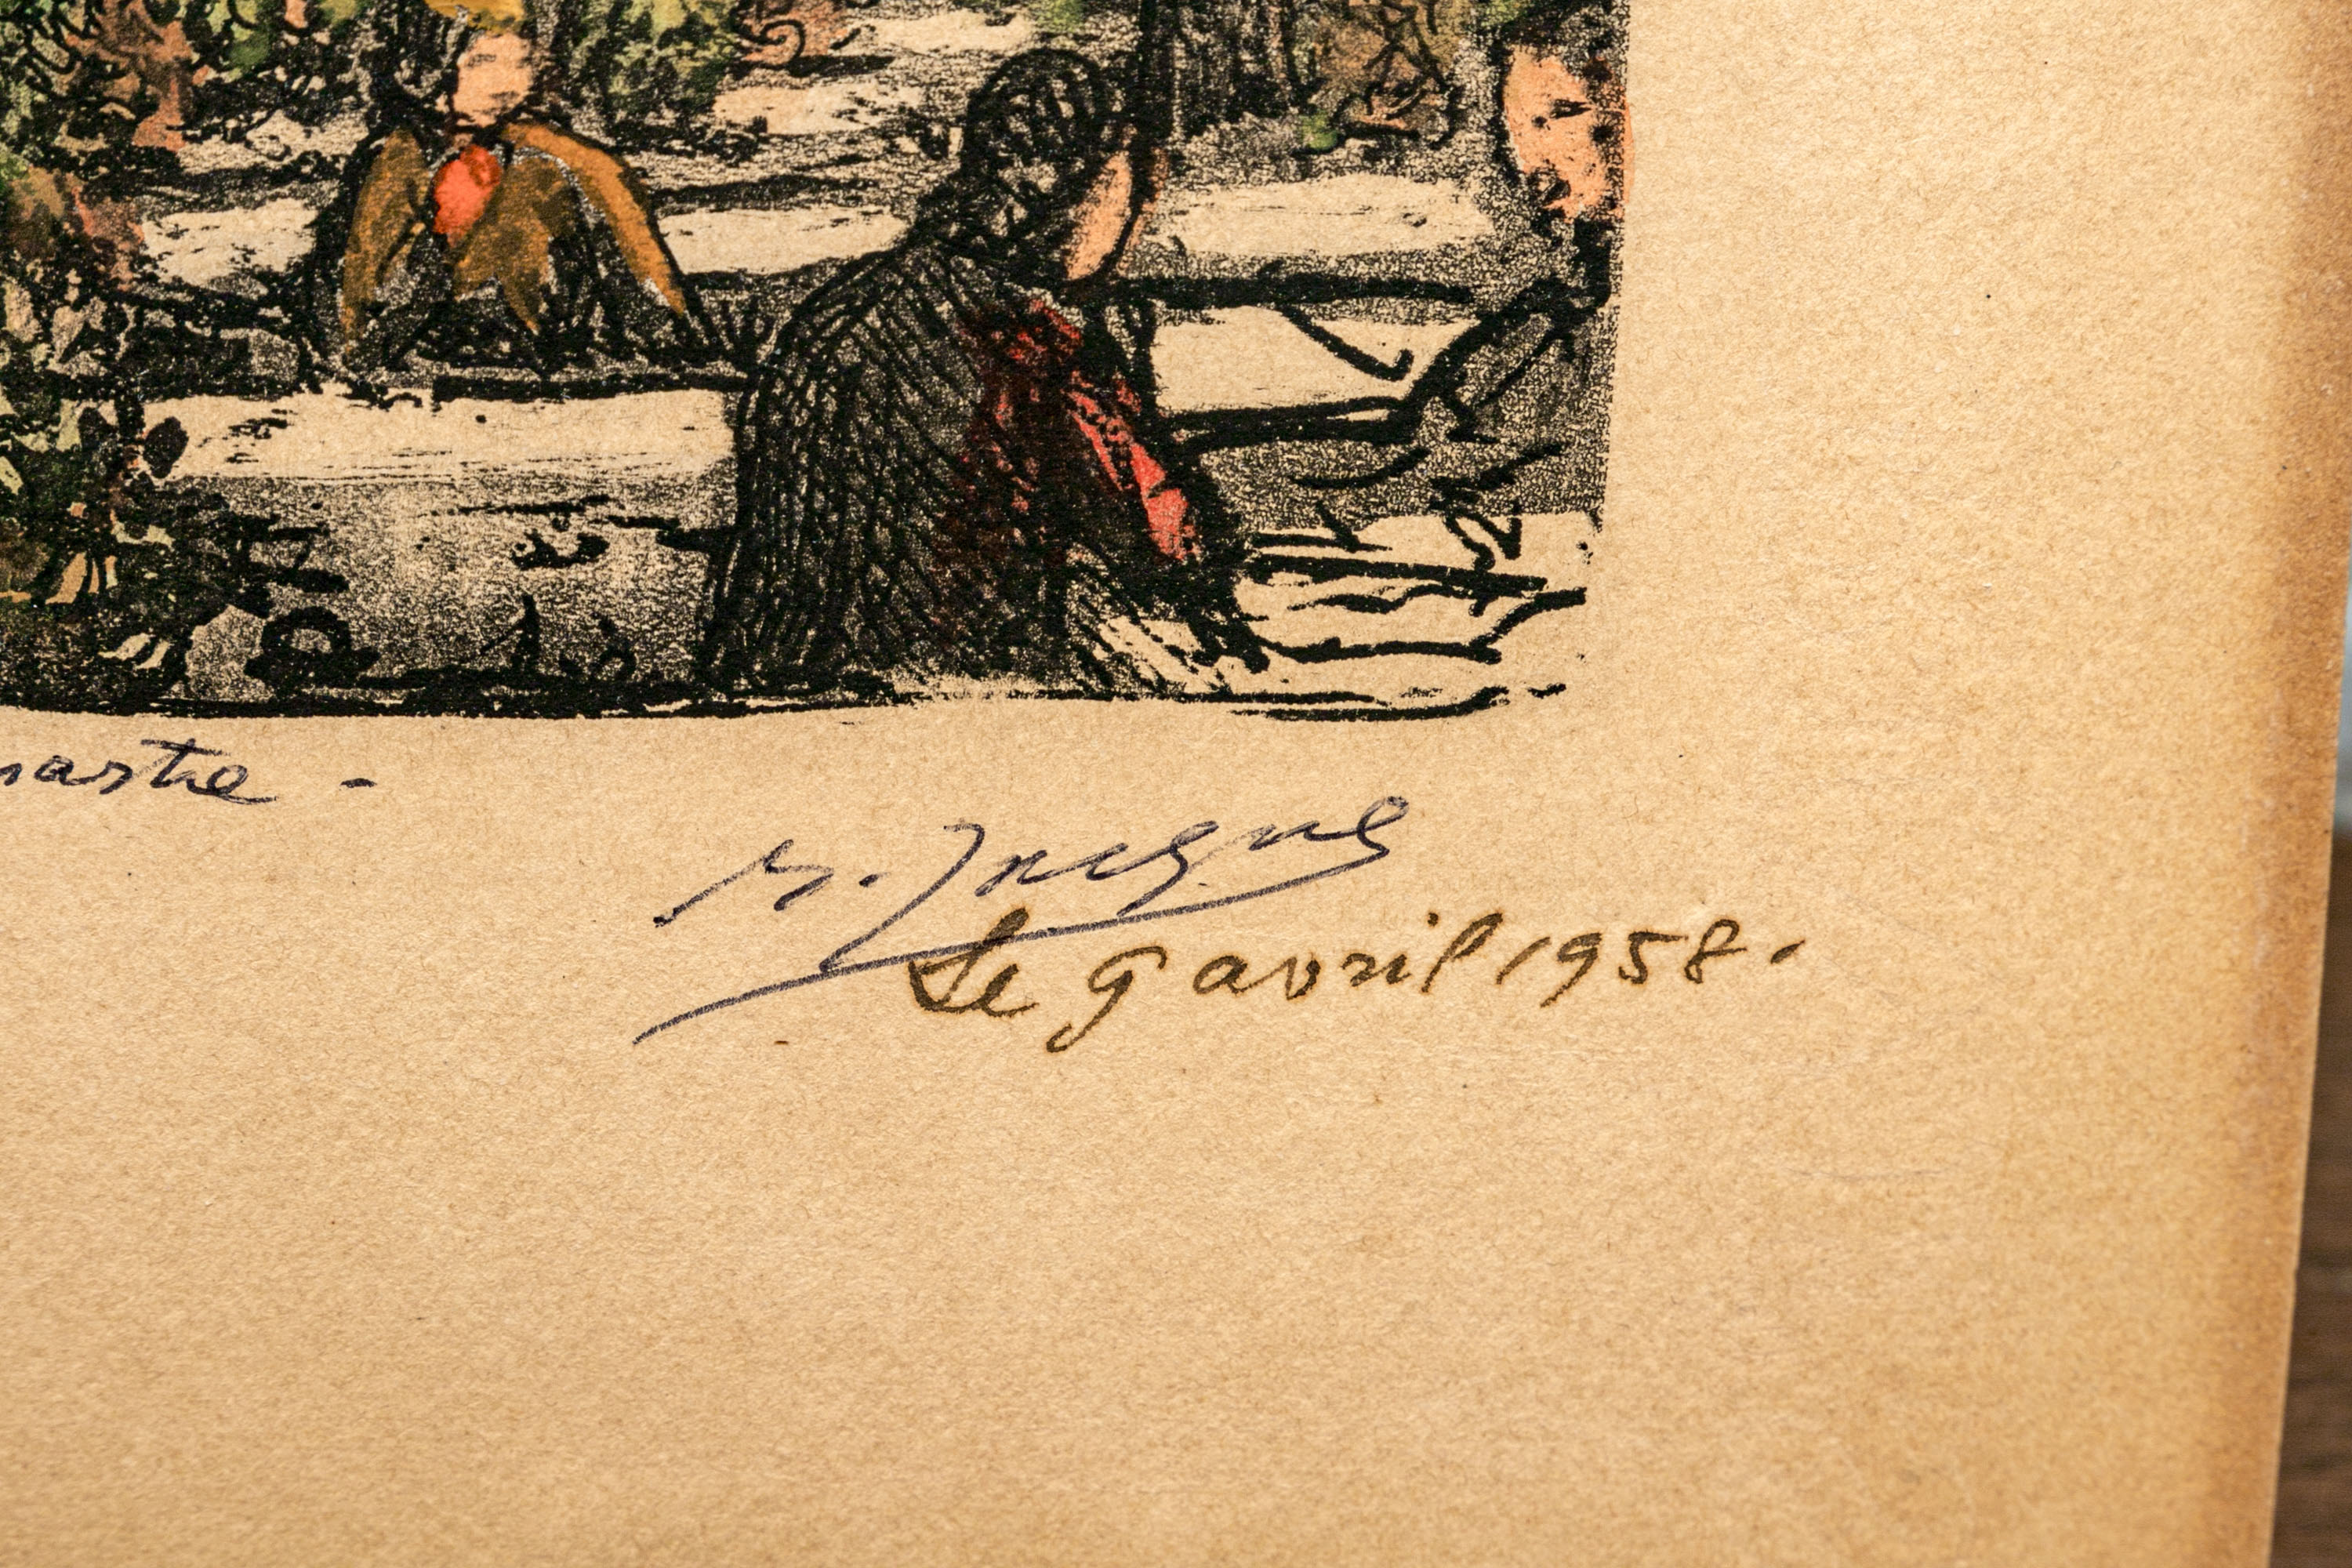 martre -
M. Jacque
Le 9 avril 1958.